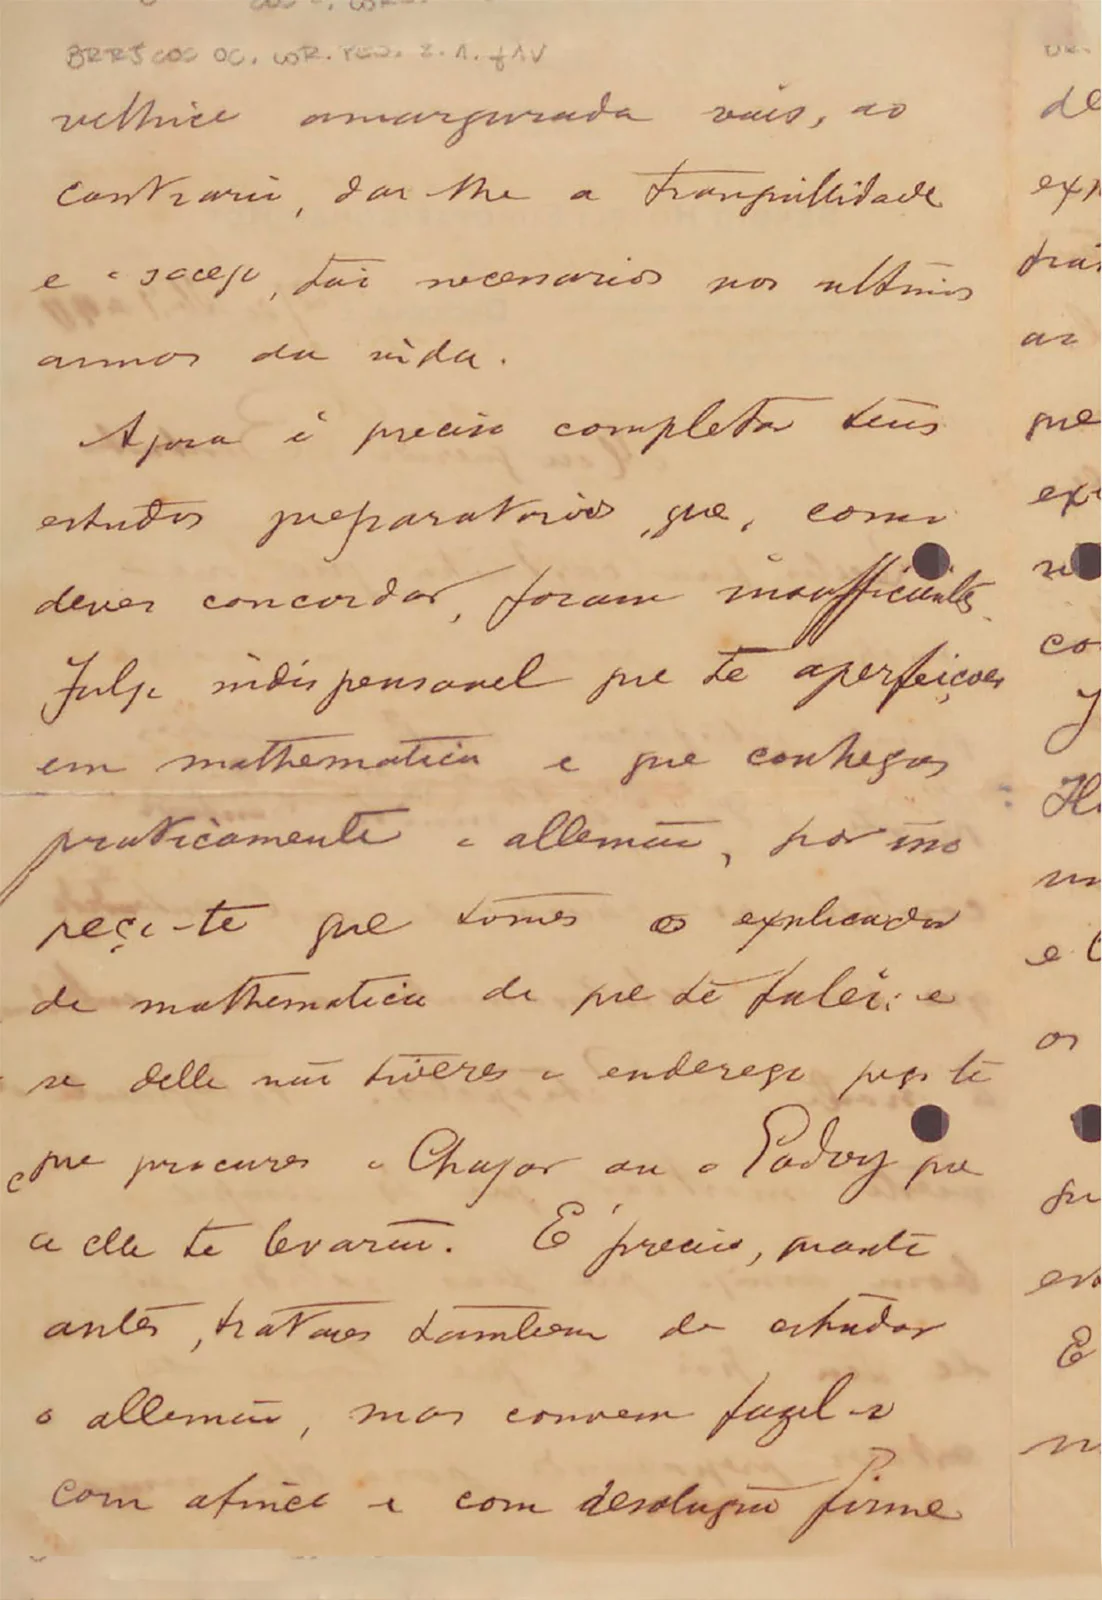 BRRJCOC OC. COR. PES. 2. 1. f1v
velhice amargurada vais, ao
contrario, dar-lhe a tranquillidade
e o socego, tão necessarios nos ultimos
annos da vida.
Agora é preciso completar teus
estudos preparatorios que, como
deves concordar, foram insufficientes.
Julgo indispensavel que te aperfeiçoes
em mathematica e que conheças
praticamente o allemão, por isso
peço-te que tomes o explicador
de mathematica de que te falei: e
se delle não tiveres o endereço peço-te
que procures o Chagas ou o Godoy que
a elle te levarão. É preciso, quanto
antes, tratares tambem de estudar
o allemão, mas convem fazel-o
com afinco e com resolução firme
de
tra
que
co
J
e
os
E